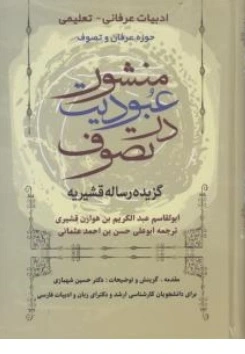 ادبیات عرفانی - تعلیمی
حوزه عرفان و تصوف
منشور
عبودیت
در
تصوف
گزیده رساله قشیریه
ابوالقاسم عبدالکریم بن هوازن قشیری
ترجمه ابوعلی حسن بن احمد عثمانی
مقدمه ، گزینش و توضیحات : دکتر حسین شهبازی
برای دانشجویان کارشناسی ارشد و دکترای زبان و ادبیات فارسی